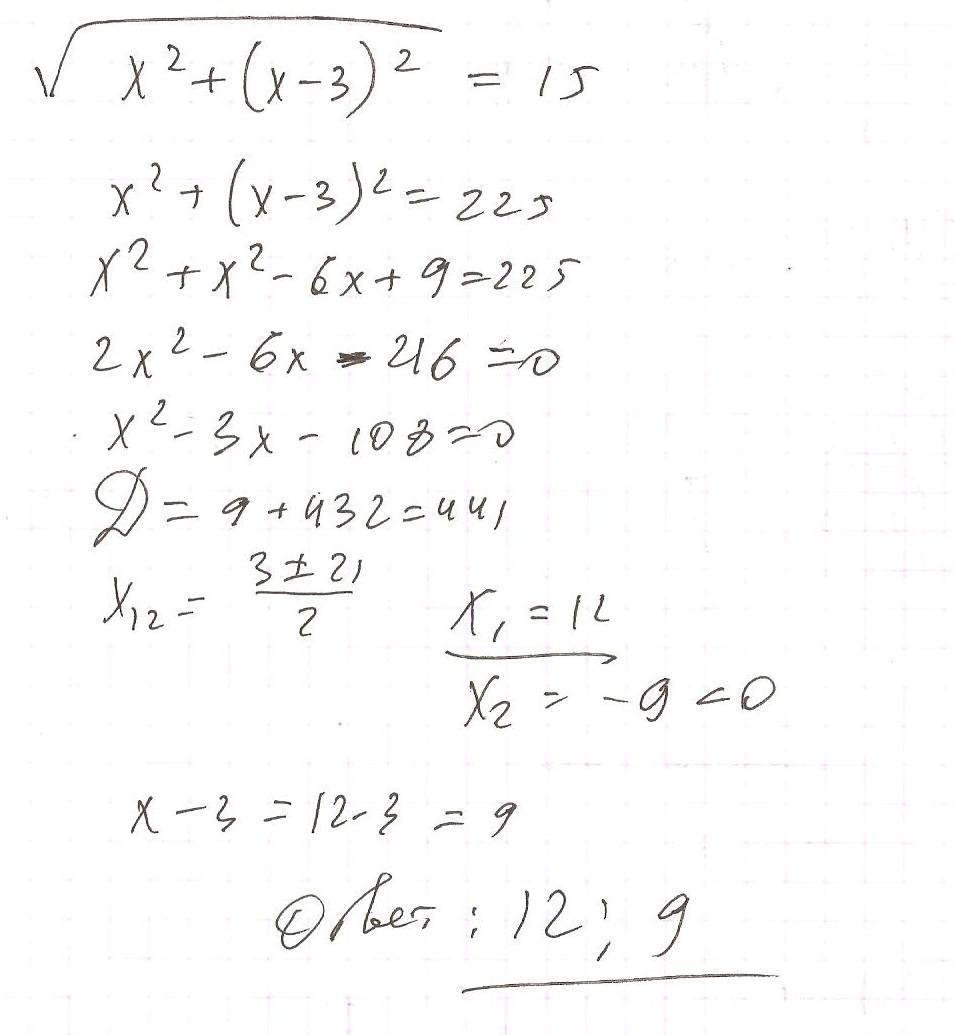 √(x² + (x-3)²) = 15
x² + (x-3)² = 225
x² + x² - 6x + 9 = 225
2x² - 6x - 216 = 0
x² - 3x - 108 = 0
D = 9 + 432 = 441
x₁₂ = (3 ± 21)/2
x₁ = 12
x₂ = -9 < 0
x - 3 = 12 - 3 = 9
Ответ: 12; 9